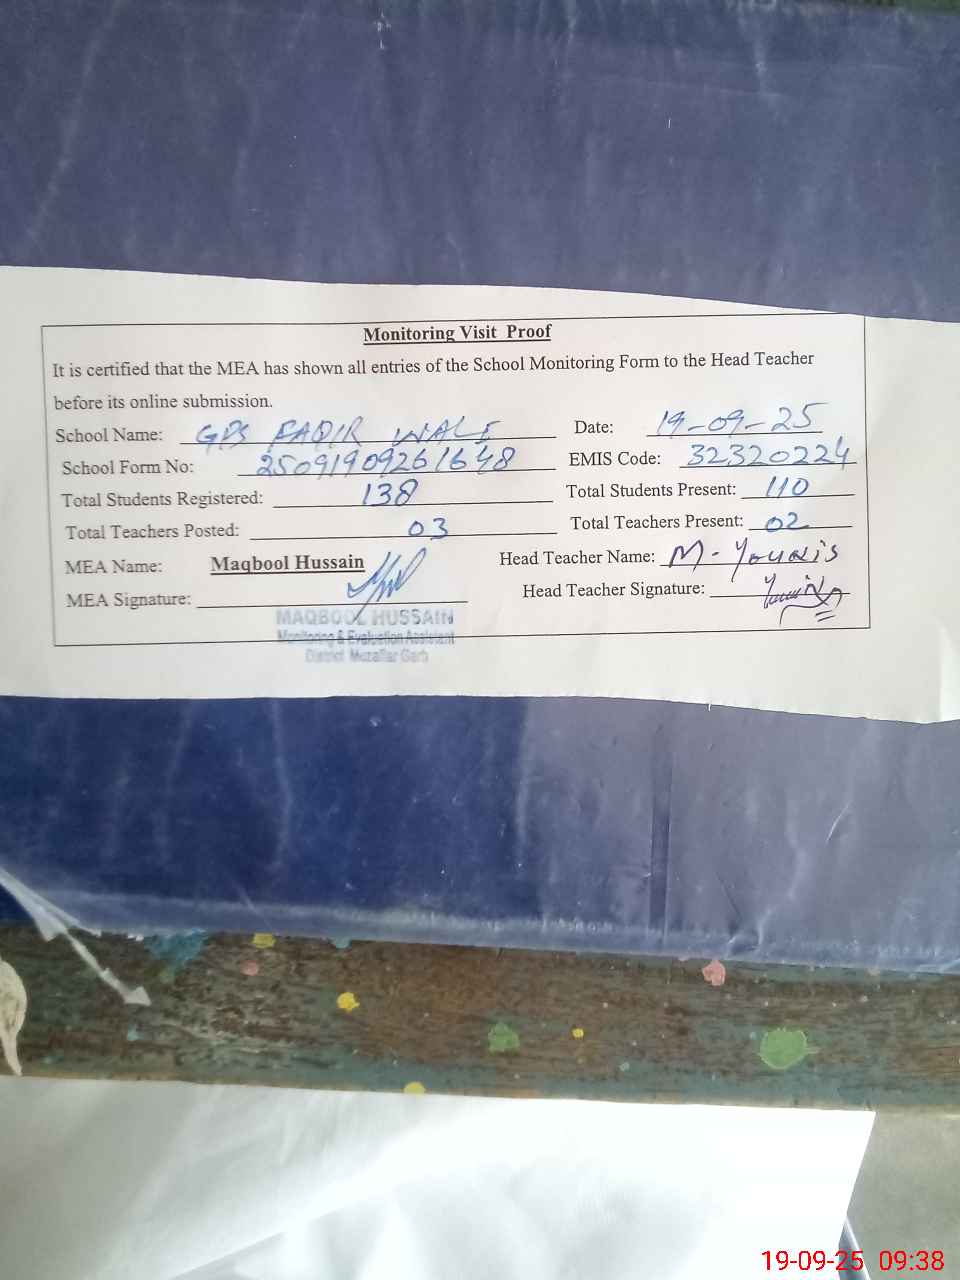 Monitoring Visit Proof
It is certified that the MEA has shown all entries of the School Monitoring Form to the Head Teacher
before its online submission.
School Name: GPS FAQIR WALI Date: 19-09-25
School Form No: 25091909261648 EMIS Code: 32320224
Total Students Registered: 138 Total Students Present: 110
Total Teachers Posted: 03 Total Teachers Present: 02
MEA Name: Maqbool Hussain Head Teacher Name: M. Younis
MEA Signature: Head Teacher Signature: Younis
MAQBOOL HUSSAIN
Monitoring & Evaluation Assistant
District Muzaffar Garh
19-09-25 09:38